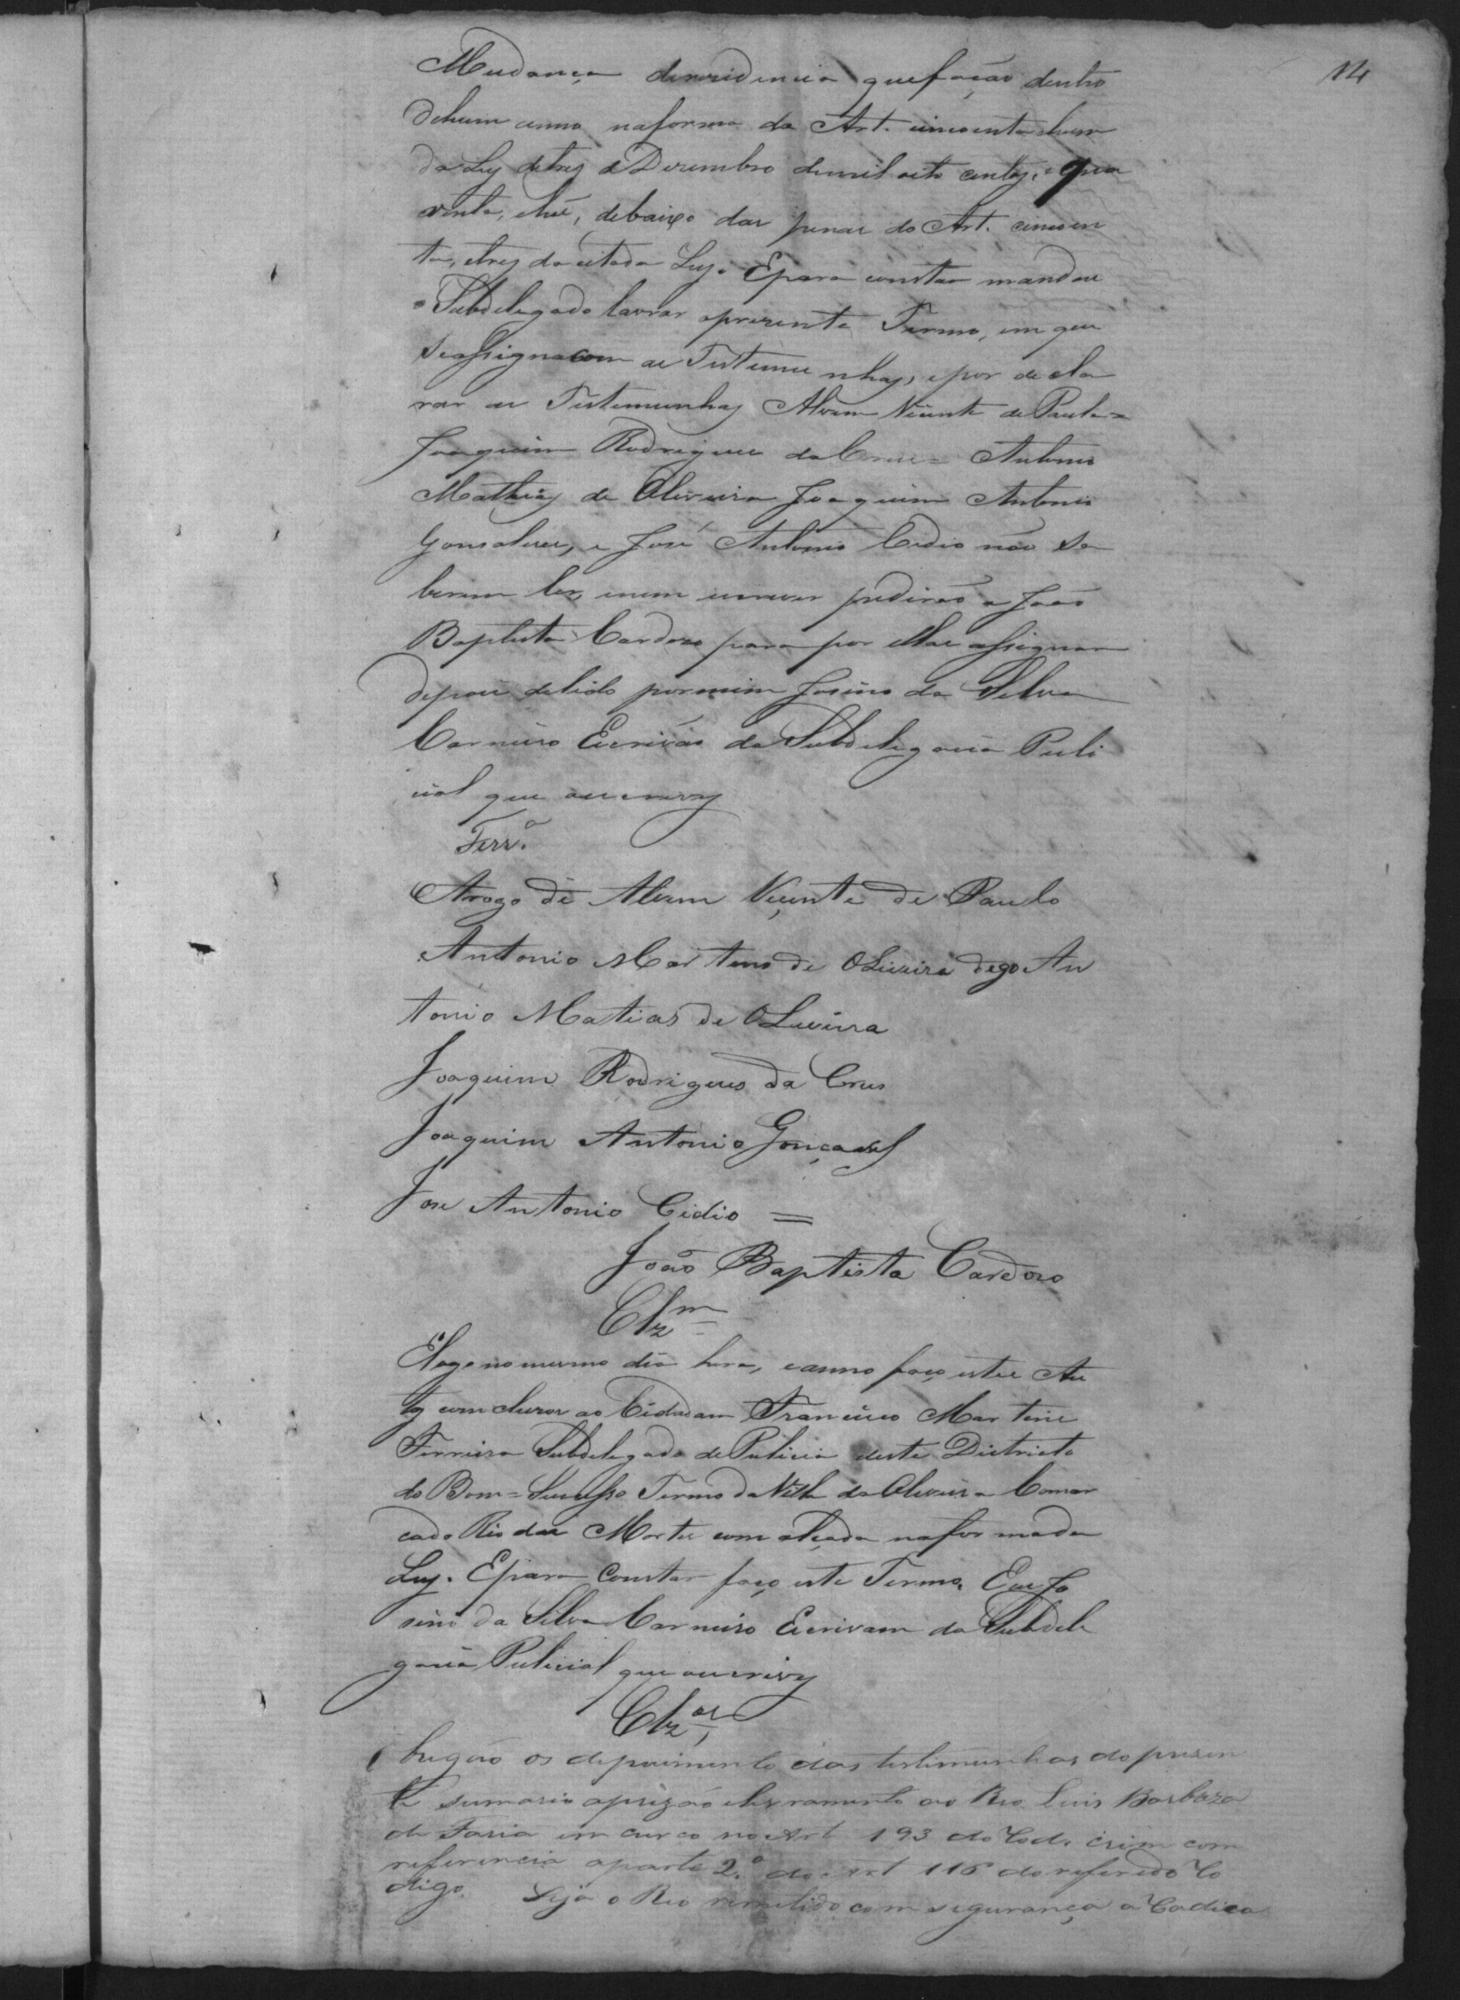 14
Mudança deresidencia quefação dentro
dehum anno naforma do Art. cincoenta ehum
da Ley detrez de Dezembro demil oito centos, e qua
renta, ehú, debaixo das penas do Art. cincoen
ta, etrez da citada Ley. Epara constar mandou
o Subdelegado lavrar oprezente Termo, em que
seassigna com as Testemunhas, epor decla
rar as Testemunhas Alvim Vicente de Paula=
Joaquim Rodrigues da Cruz= Antonio
Mathias de Oliveira Joaquim Antonio
Gonsalves, e José Antonio Cidio não sa
berem ler, enem escrever pedirão a João
Baptista Cardozo para por elles assignar
depois delido pormim Josino da Silva
Carneiro Escrivão da Subdelegacia Puli
cial que oescrevy
Ferr.ª
Arogo de Alvim Vicente de Paulo
Antonio Martins de OLiveira digo An
tonio Matias de OLiveira
Joaquim Rodrigues da Crus
Joaquim Antonio Gonçalves
Jose Antonio Cidio =
João Baptista Cardozo
Clz.m
Elogo nomesmo dia hora, eanno faço estes Au
tos comcluzos ao Cidadam Francisco Martins
Ferreira Subdelegado de Pulicia deste Districto
do Bom=Sucesso Termo da Villa da Oliveira Comar
cado Rio das Mortes com alçada naformada
Ley. Epara Constar faço este Termo. Eu Jo
sino da Silva Carneiro Escrivam da Subdele
gacia Pulicial que oescrevy
Clz.os
Obrigão os depoimento das testimunhas do presen
te sumario aprizão elivramento ao Reo Luis Barboza
de Faria em curço no Art 193 do Cod. crim com
referencia aparte 2.ª do Art 116 do referido Co
digo. Seja o Reo remetido com segurança a Cadiea